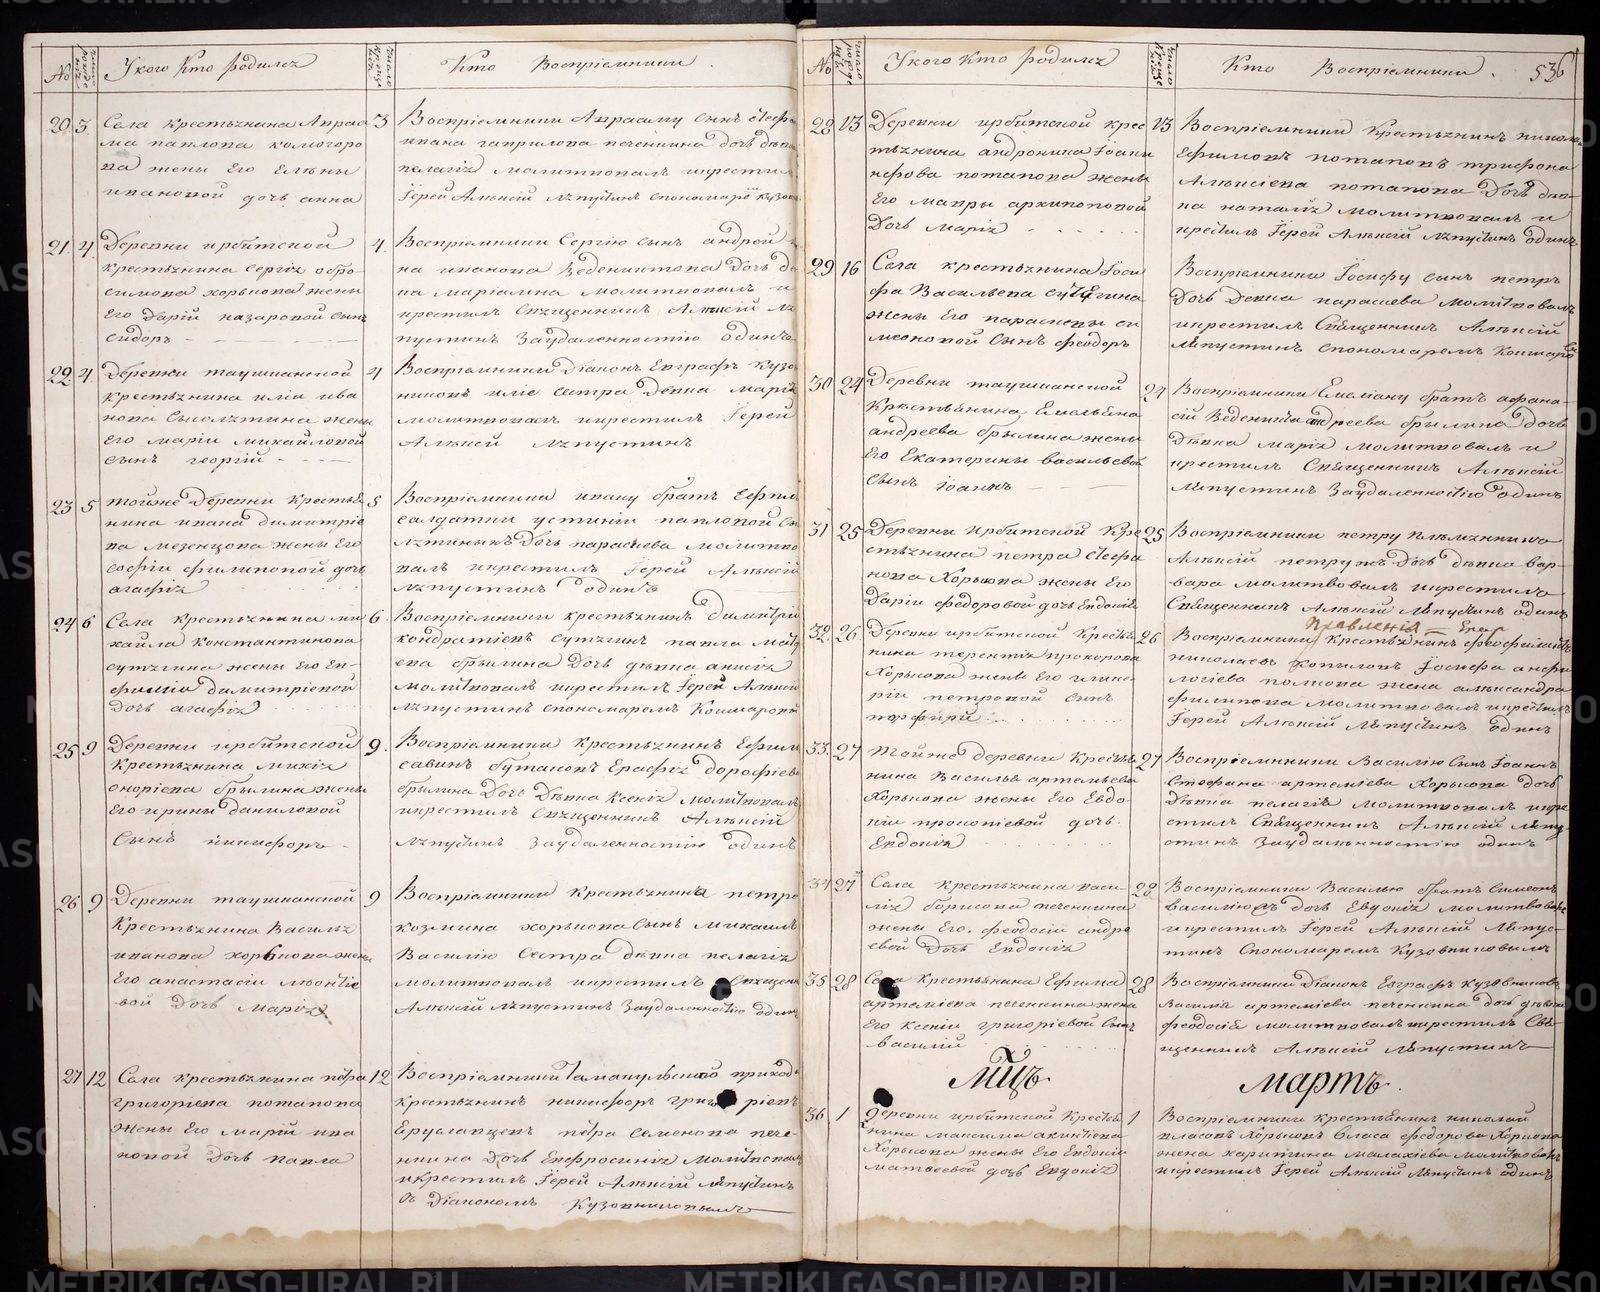 №
число рождения
У кого Кто родился
число крещения
Кто Воспріемники.
20 3 Села крестьянина Авраа 3
ма павлова комогоро
ва жены Его Елены
ивановой дочь анна
Воспріемники Авраму сынъ стефа
ивана гаврилова печенкина дочь девка
пелагія молитвовалъ икрестил
Іерей Алексій ляпустинъ спономаремъ кузов
21 4 Деревни ирбитской 4.
крестьянина Сергія обро-
симова хорькова жены
Его Дарій назаровой сынъ
сидоръ - -
Воспріемники Сергію сынъ андрей
на иванова Веденихтова Дочь де
на маріамна молитвовалъ и
крестилъ Священникъ Алексій ля
пустинъ Заудаленностію Одинъ
22 4 Деревни таушканской 4
крестьянина иліи ива
нова Сысолятина жены
Его маріи михайловой
Сынъ георгій - -
Воспріемники Діаконъ Евграфъ Кузов
никовъ иліе Сестра Девка марія
молитвовалъ икрестил Іерей
Алексей ляпустинъ
23 5 тойже Деревни Крестья 5
нина ивана димитріе
ва мезенцова жены Его
софіи филиповой дочь
агафія
Воспріемники ивану братъ Ефим
солдатки устиніи павловой
лятиныхъ Дочь парасковья молитво
валъ икрестил Іерей Алексій
ляпустинъ одинъ
24 6 Села крестьянина ми 6.
хайла константинова
сутягина жены Его Ев-
фиміи димитріевой
Дочь агафія
Воспріемники крестьянинъ Димитрій
кондратіевъ сутягинъ павла мат
ева брылина Дочь девка анисія
молитвовалъ икрестилъ Іерей Алексій
ляпустинъ спономаремъ Кошкаровы
25 9 Деревни ирбитской 9.
Крестьянина михія
оноріева брылина жены
Его ирины даниловой
Сынъ никифоръ -
Воспріемники Крестьянинъ Ефим
савинъ бутаковъ Ерафія дорофіев
брылина Дочь Девка Ксенія молитвовалъ
икрестилъ Священникъ Алексій
ляпустинъ Заудаленностію одинъ
26 9 Деревни таушканской 9
Крестьянина Василья
иванова хорькова жены
Его анастасіи леонтіе
вой Дочь Марія
Воспріемники Крестьянина петра
козмина хорькова Сынъ михаилъ
Василію Сестра девка пелагія
молитвовалъ икрестилъ Священ
Алексій ляпустинъ Заудаленностію один
27 12 Села крестьянина петра 12
григоріева потапова
жены Его маріи ива
новой Дочь павла
Воспріемники приход
крестьянинъ никифоръ григоріевъ
Еруславцевъ петра Семенова пече-
нкина Дочь Ефросинія Молитвовал
икрестилъ Іерей Алексій ляпустинъ
съ Діакономъ Кузовниковымъ
№
число рождения
У кого Кто родился
число крещения
Кто Воспріемники. 536
28 13 Деревни ирбитской крес 13
тьянина андроника Іоаки
нфова потапова жены
Его мавры архиповой
Дочь Марія
Воспріемники Крестьянинъ николай
Ефимовъ потаповъ трифона
Алексіева потапова Дочь дев-
ка наталія молитвовалъ и
крестилъ Іерей Алексій ляпустинъ одинъ
29 16 Села крестьянина Іоси
фа Васильева сутягина
жены Его парасковьи си
меоновой Сынъ феодоръ
Воспріемники Іосифу сынъ петръ
Дочь Девка парасковья молитвовалъ
икрестилъ Священникъ Алексій
ляпустинъ спономаремъ Кошкаров
30 24 Деревни таушканской 24
Крестьянина Емельяна
андреева брылина жены
Его Екатерины васильевой
Сынъ іоаннъ -
Воспріемники Емеліану братъ афана
сій Веденикта андреева брылина дочь
Девка марія молитвовалъ и
крестилъ Священникъ Алексій
ляпустинъ Заудаленностію одинъ
31 25 Деревни Ирбитской Кре 25
стьянина петра стефа
нова Хорькова жены Его
Даріи федоровой дочь евдокія
Воспріемники петру племянника
Алексій петруже Дочь девка вар-
вара молитвовалъ икрестилъ
Священникъ Алексій ляпустинъ одинъ
32. 26 Деревни ирбитской Крестья 26
нина терентія прохорова
Хорькова жены Его глике-
ріи петровой Сынъ
порфирій
Воспріемники крестьянинъ феофилактъ
николаевъ Копыловъ Іосифа анфи
логіева полкова жена александра
филипова молитвовалъ икрестилъ
Іерей Алексій ляпустинъ одинъ
33. 27 Тойже деревни Крестья 27
нина Василья артемьева
Хорькова жены Его Евдо-
кіи прокопіевой дочь.
Евдокія
Воспріемники Василію Сынъ Іоаннъ
Стефана артеміева Хорькова дочь
Девка пелагія молитвовалъ икре
стилъ Священникъ Алексій ляпу
стинъ Заудаленностію одинъ
34 27 Села крестьянина васи- 28
лія борисова печенкина
жены Его. феодосіи андре
евой Дочь Евдокія
Воспріемники Василью братъ Симеонъ
василіюжъ дочь Евдокія молитвовалъ
икрестилъ Іерей Алексій ляпус-
тинъ Спономаремъ Кузовниковымъ
35 28 Села крестьянина Ефима 28
артеміева печенкина жены
Его Ксеніи григоріевой Сынъ
василій
Воспріемники Діаконъ Евграфъ Кузовниковъ
Василія артеміева печенкина дочь девка
феодосія молитвовалъ икрестилъ Свя-
щенникъ Алексій ляпустинъ
Мцъ Мартъ.
36 1 Деревни ирбитской Крестья 1
нина максима акинтіева
Хорькова жены Его Евдокіи
матвеевой дочь Евдокія
Воспріемники крестьянинъ николай
власовъ Хорьковъ власа федорова Хорькова
жена харитина малахіева молитвовалъ
икрестилъ Іерей Алексій ляпустинъ одинъ
METRIKI.GASO-URAL.RU